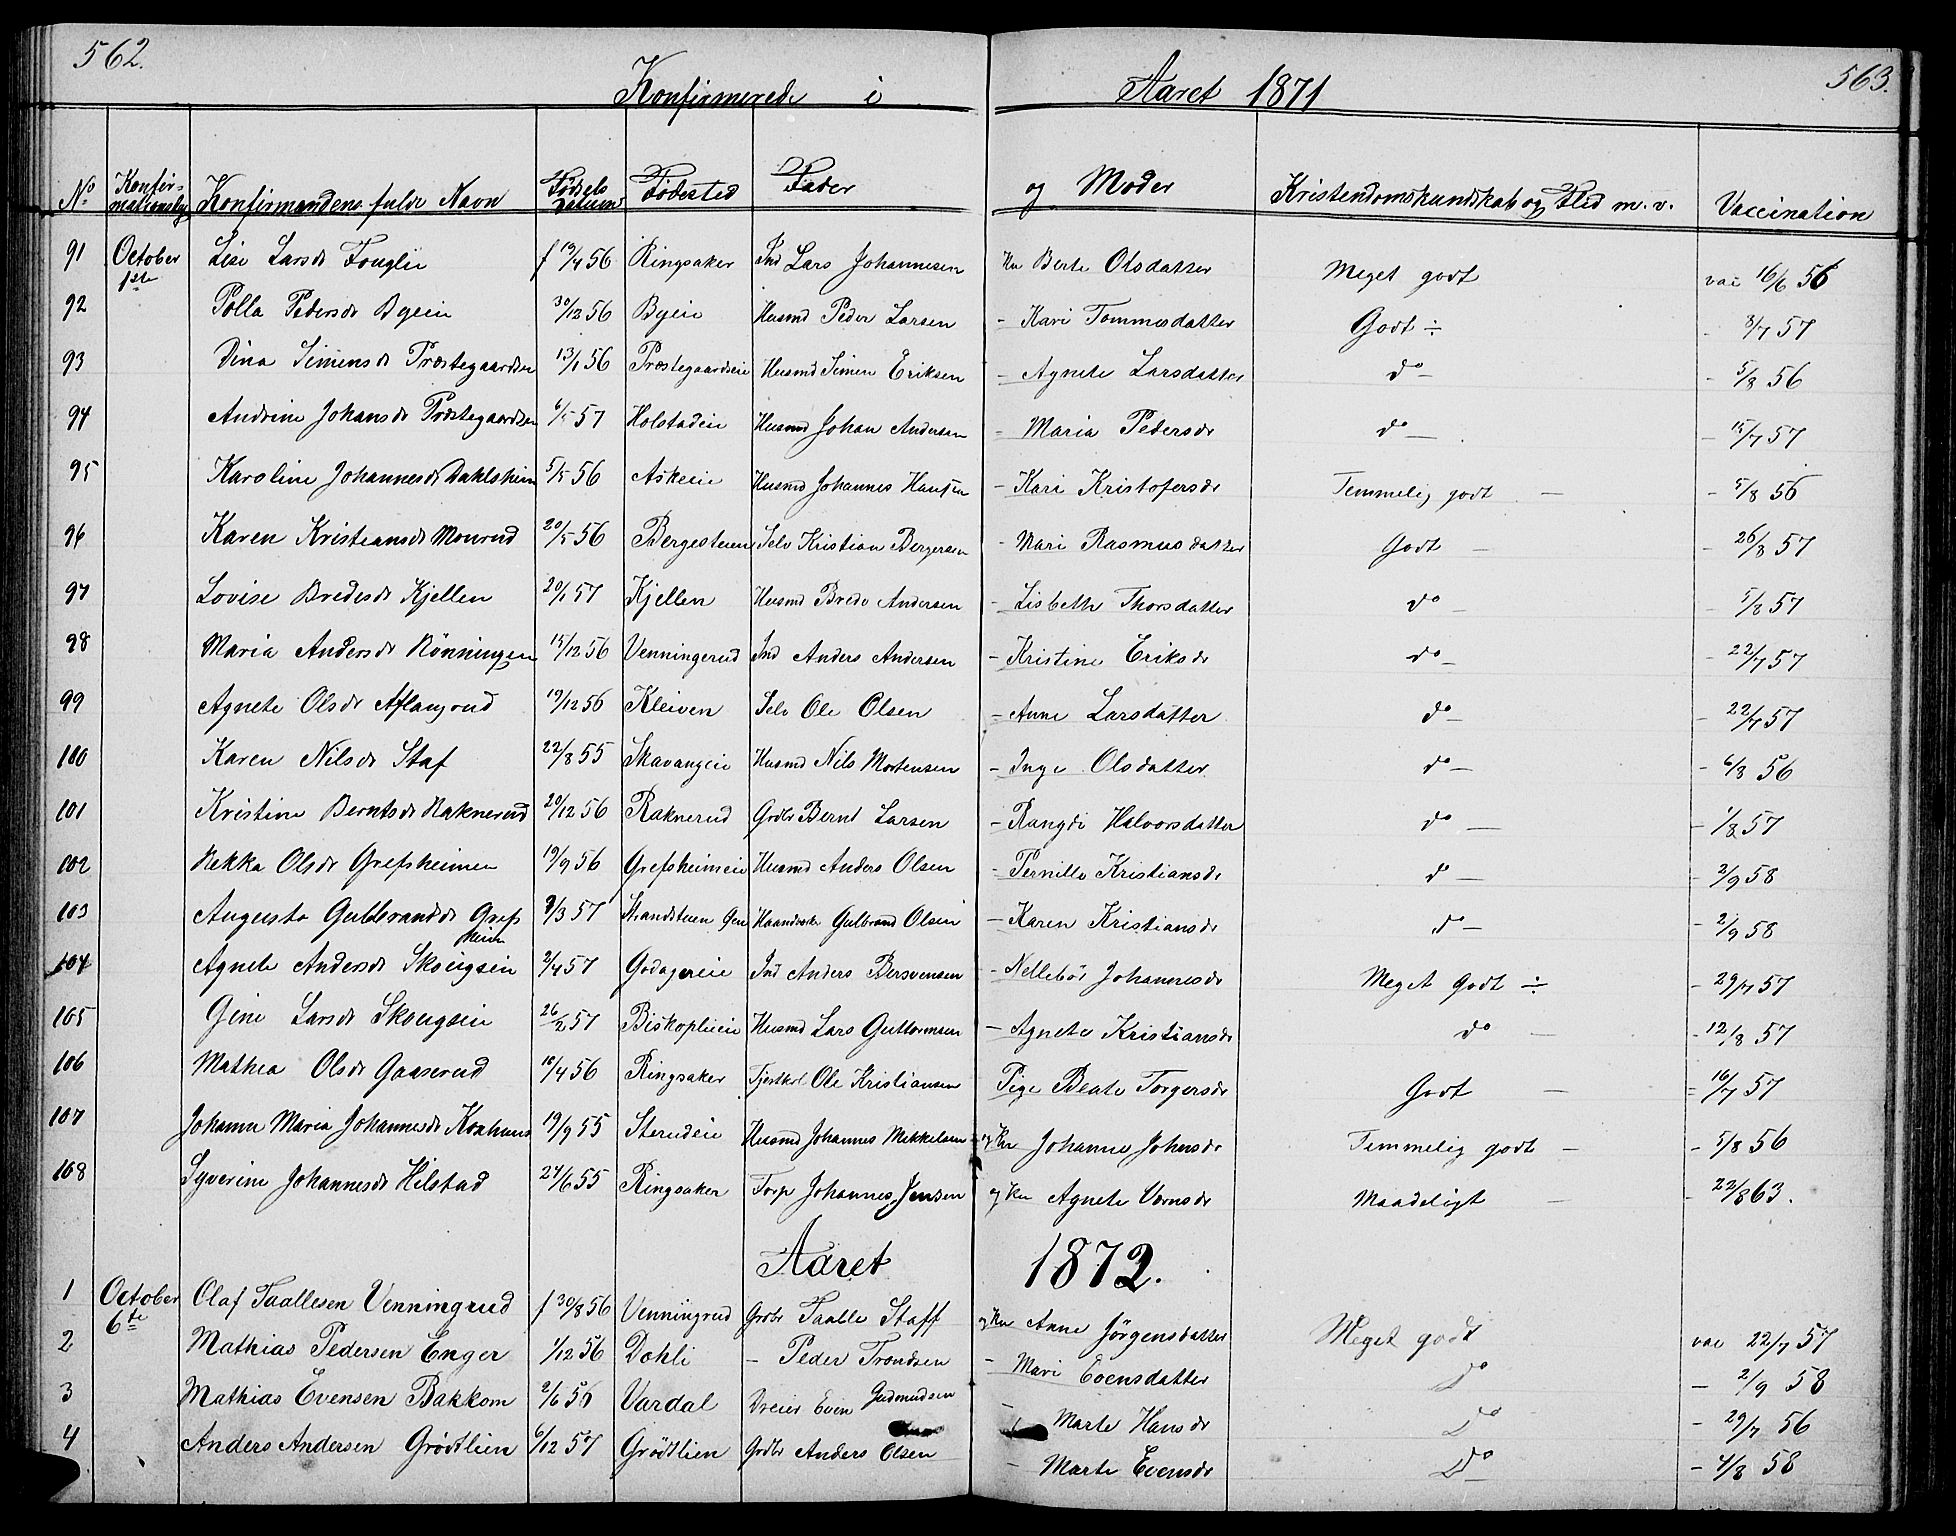 562.
563.
Konfirmerede i Aaret 1871
No Konfirmationsdag Konfirmandens fulde Navn Fødsels Datum Fødested Fader og Moder Kristendomskundskab og Flid m. v. Vaccination
91 October 1ste Lise Larsdr f 19/4 56 Ringsaker Ind Lars Johannesen Kn Berte Olsdatter Meget godt vac 16/6 56
92 Polla Pedersdr Byeie 30/12 56 Byeie Husmd Peder Larsen - Kari Tommesdatter Godt ÷ - 8/7 57
93 Dina Simensdr Præstegaardsen 13/1 56 Præstegaardseie Husmd Simen Eriksen - Agnete Larsdatter do - - 5/8 56
94 Andrine Johansdr Præstegaardsen 6/5 57 Holstadeie Husmd Johan Andersen - Maria Pedersdr do - - 15/7 57
95 Karoline Johannesdr Dahlsheim 5/5 56 Askeie Husmd Johannes Hansen - Kari Kristofersdr Temmelig godt - - 5/8 56
96 Karen Kristiansdr Monrud 20/5 56 Bergestuen Selv Kristian Bergersen - Mari Rasmusdatter Godt - - 26/8 57
97 Lovise Bredesdr Kjellen 20/1 57 Kjellen Husmd Brede Andersen - Lisbeth Thorsdatter do - - 5/8 57
98 Maria Andersdr Rönningen 15/12 56 Venningerud Ind Anders Andersen - Kristine Eriksdr do - - 22/7 57
99 Agnete Olsdr Aflangrud 19/12 56 Kleiven Selv Ole Olsen - Anne Larsdatter do - - 22/7 57
100 Karen Nilsdr Staf 22/8 55 Skavangeie Husmd Nils Mortensen - Inge Olsdatter do - - 6/8 56
101 Kristine Berntsdr Raknerud 20/12 56 Raknerud Grdbr Bernt Larsen - Rangdi Halvorsdatter do - - 1/8 57
102 Rekka Olsdr Grefsheimen 19/9 56 Grefsheimeie Husmd Anders Olsen - Pernille Kristiansdr do - - 2/9 58
103 Augusta Gulbrandsdr Grefsheim 8/3 57 Strandstuen Haandverker Gulbrand Olsen - Karen Kristiansdr do - - 2/9 58
104 Agnete Andersdr Skougseie 2/4 57 Godagereie Ind Anders Bersvensen - Nellebör Johannesdr Meget Godt ÷ - 29/7 57
105 Gine Larsdr Skougseie 26/2 57 Biskoplieie Husmd Lars Guttormsen - Agnete Kristiansdr do - - 12/8 57
106 Mathea Olsdr Gaaserud 18/4 56 Ringsaker Tjestkrl Ole Kristiansen Pige Beate Torgersdr Godt - - 16/7 57
107 Johanne Maria Johannesdr Korhuus 19/9 55 Sterudeie Husmd Johannes Mikkelsen og Kn Johanne Johnsdr Temmelig godt - - 5/8 56
108 Syverine Johannesdr Hilstad 24/6 55 Ringsaker Torp Johannes Jensen og Kn Agnete Maadeligt - - 22/8 63.
Aaret 1872.
1 October 6te Olaf Taallesen Venningrud f 30/8 56 Venningrud Grdbr Taalle Staff og Kn Anne Jörgensdatter Meget godt vac 22/7 57
2 Mathias Pedersen Enger 1/12 56 Dohli - Peder Trondsen - Mari Evensdatter do - 2/9 58
3 Mathias Evensen Bakkom 2/6 56 Vardal Dreier Even Gudmundsen - Marte Hansdr Do - 29/7 56
4 Anders Andersen Grödtlien 6/12 57 Grödtlien Grdbr Anders Olsen - Marte Evensdr Do - 4/8 58